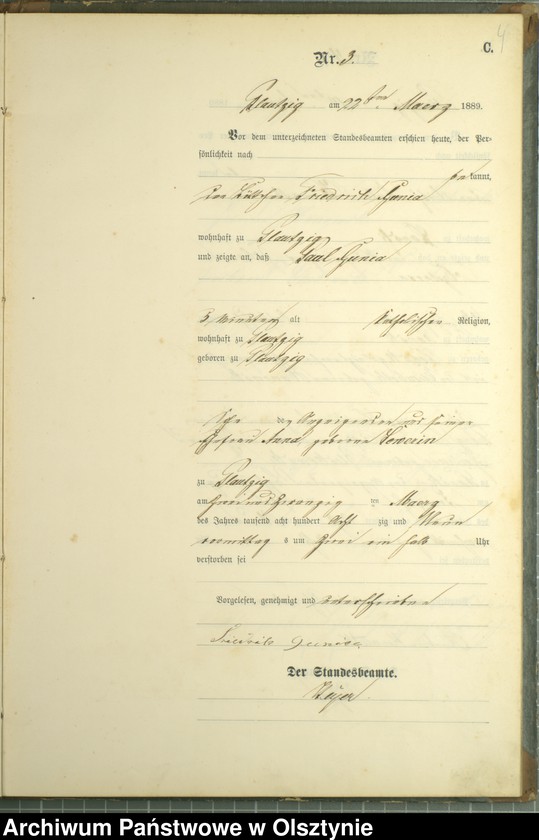 C.
4
Nr. 3.
Plautzig am 22 ten Maerz 1889.
Vor dem unterzeichneten Standesbeamten erschien heute, der Per-
sönlichkeit nach
bekannt,
der Friedrich Gunia
wohnhaft zu Plautzig
und zeigte an, daß Paul Gunia
5 alt katholischer Religion,
wohnhaft zu Plautzig
geboren zu Plautzig
Sohn des und seiner
Ehefrau Anna geborne
zu Plautzig
am zwei und zwanzig ten Maerz
des Jahres tausend acht hundert Acht zig und Neun
vormittag s um zwei ein halb Uhr
verstorben sei
Vorgelesen, genehmigt und unterschrieben
Gunia
Der Standesbeamte.
Archiwum Państwowe w Olsztynie